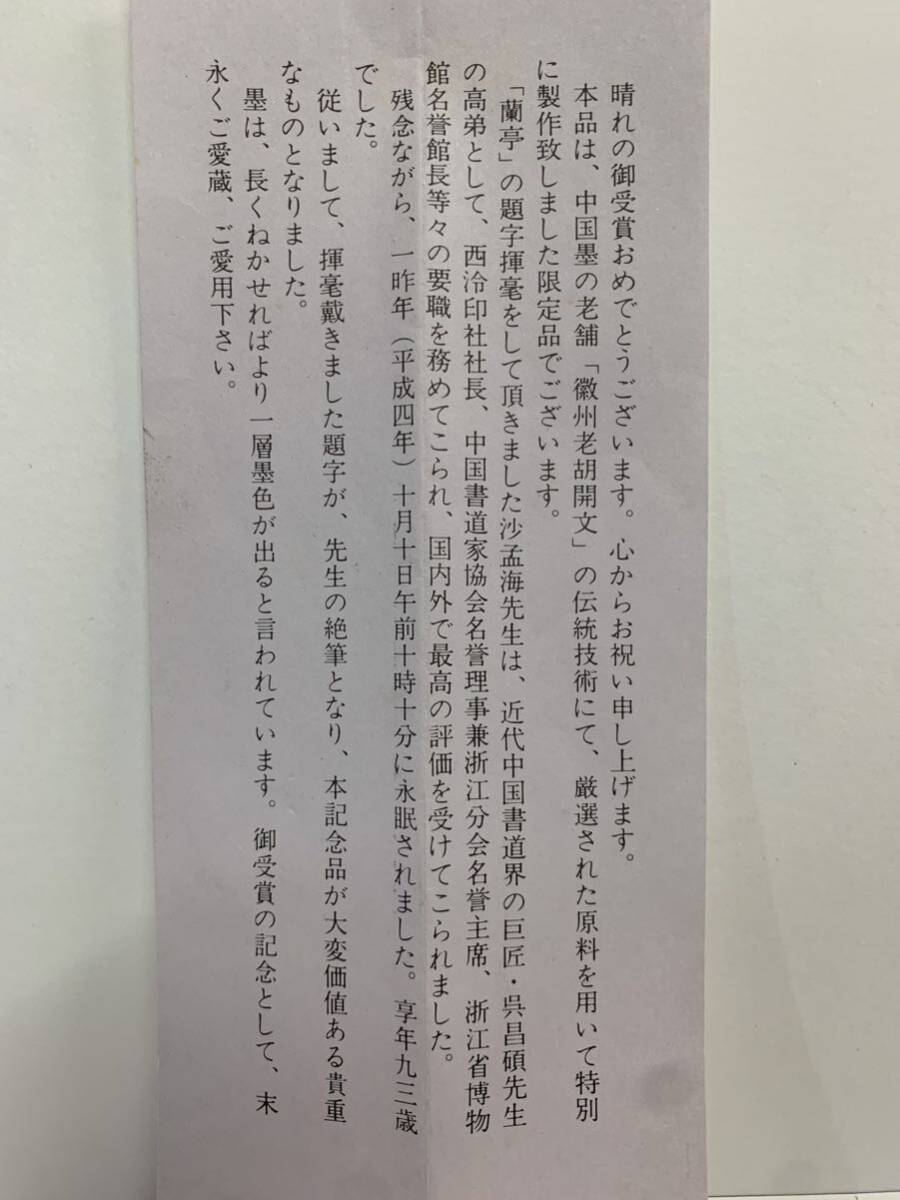 晴れの御受賞おめでとうございます。心からお祝い申し上げます。
本品は、中国墨の老舗「徽州老胡開文」の伝統技術にて、厳選された原料を用いて特別
に製作致しました限定品でございます。
「蘭亭」の題字揮毫をして頂きました沙孟海先生は、近代中国書道界の巨匠・呉昌碩先生
の高弟として、西泠印社社長、中国書道家協会名誉理事兼浙江分会名誉主席、浙江省博物
館名誉館長等々の要職を務めてこられ、国内外で最高の評価を受けてこられました。
残念ながら、一昨年（平成四年）十月十日午前十時十分に永眠されました。享年九三歳
でした。
従いまして、揮毫戴きました題字が、先生の絶筆となり、本記念品が大変価値ある貴重
なものとなりました。
墨は、長くねかせればより一層墨色が出ると言われています。御受賞の記念として、末
永くご愛蔵、ご愛用下さい。